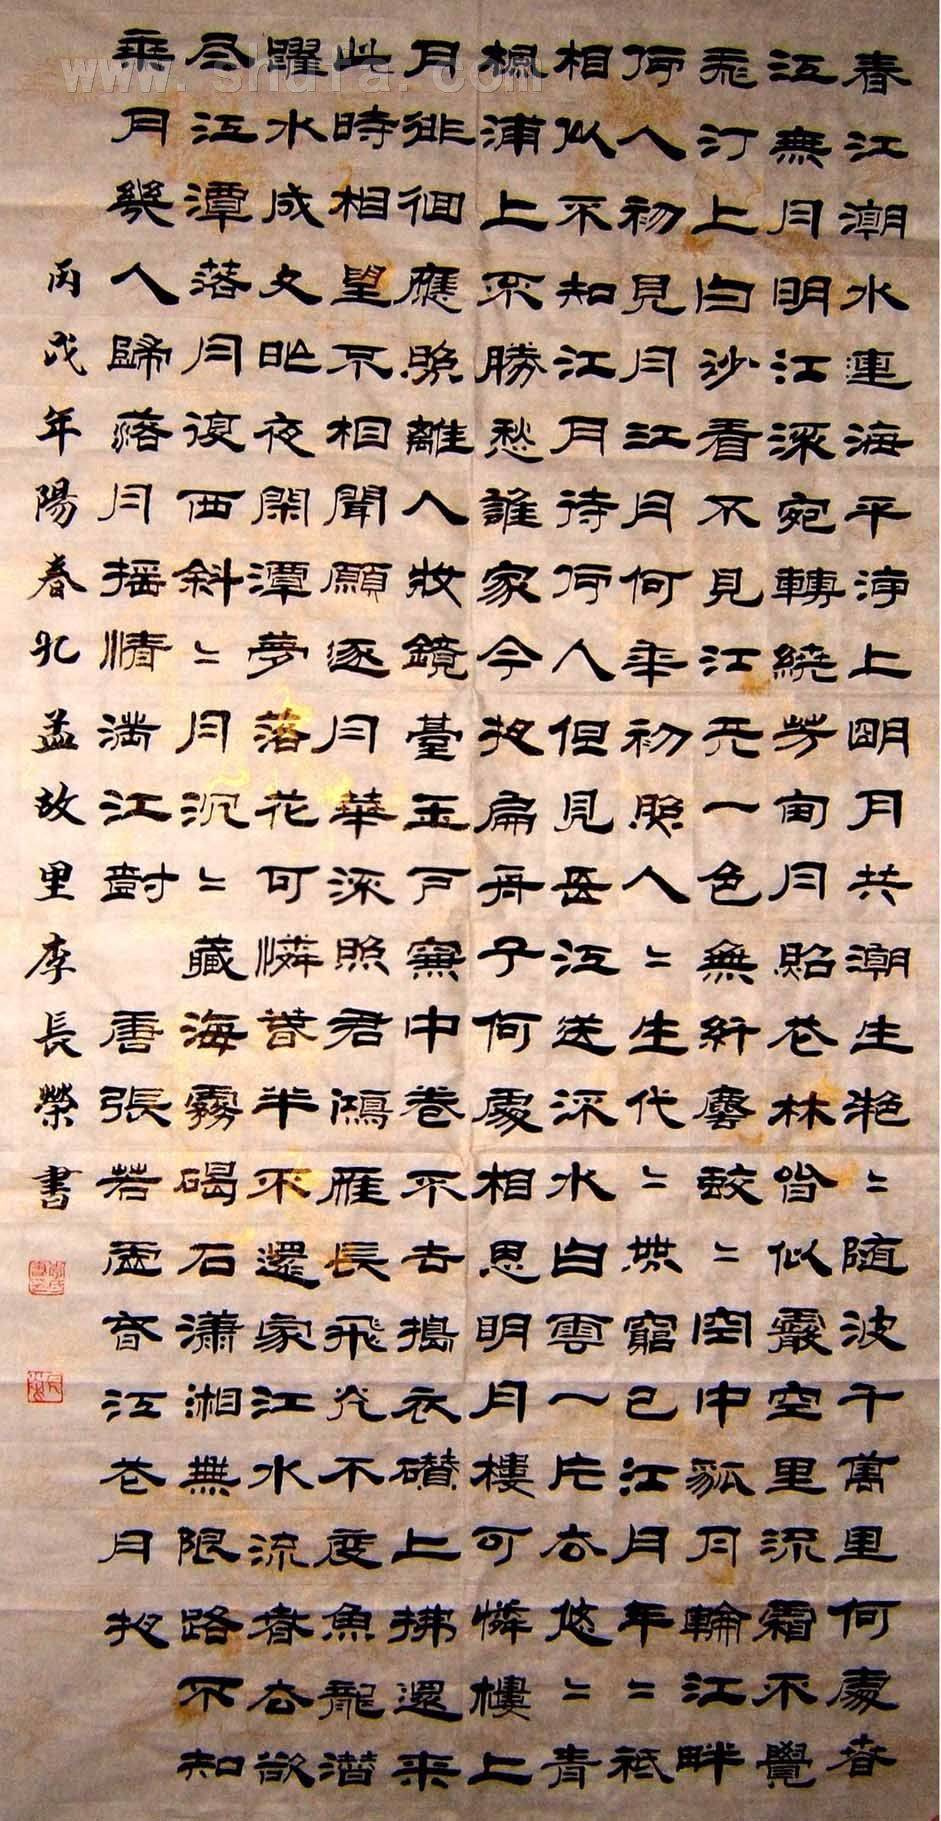 春江潮水連海平海上明月共潮生灔〻随波千萬里何處春
江無月明江流宛轉繞芳甸月照花林皆似霰空里流霜不覺
飛汀上白沙看不見江天一色無纤塵皎〻空中孤月輪江畔
何人初見月江月何年初照人〻生代〻無窮已江月年〻祗
相似不知江月待何人但見長江送流水白雲一片去悠〻青
楓浦上不勝愁誰家今夜扁舟子何處相思明月樓可憐樓上
月徘徊應照離人妝鏡臺玉户簾中卷不去搗衣砧上拂還来
此時相望不相聞願逐月華流照君鴻雁長飛光不度魚龍潜
躍水成文昨夜閑潭夢落花可憐春半不還家江水流春去欲
尽江潭落月復西斜〻月沉〻藏海霧碣石瀟湘無限路不知
乘月幾人歸落月摇情满江樹 唐張若虚春江花月夜
丙戌年陽春孔孟故里李長榮書
www.shufa.com